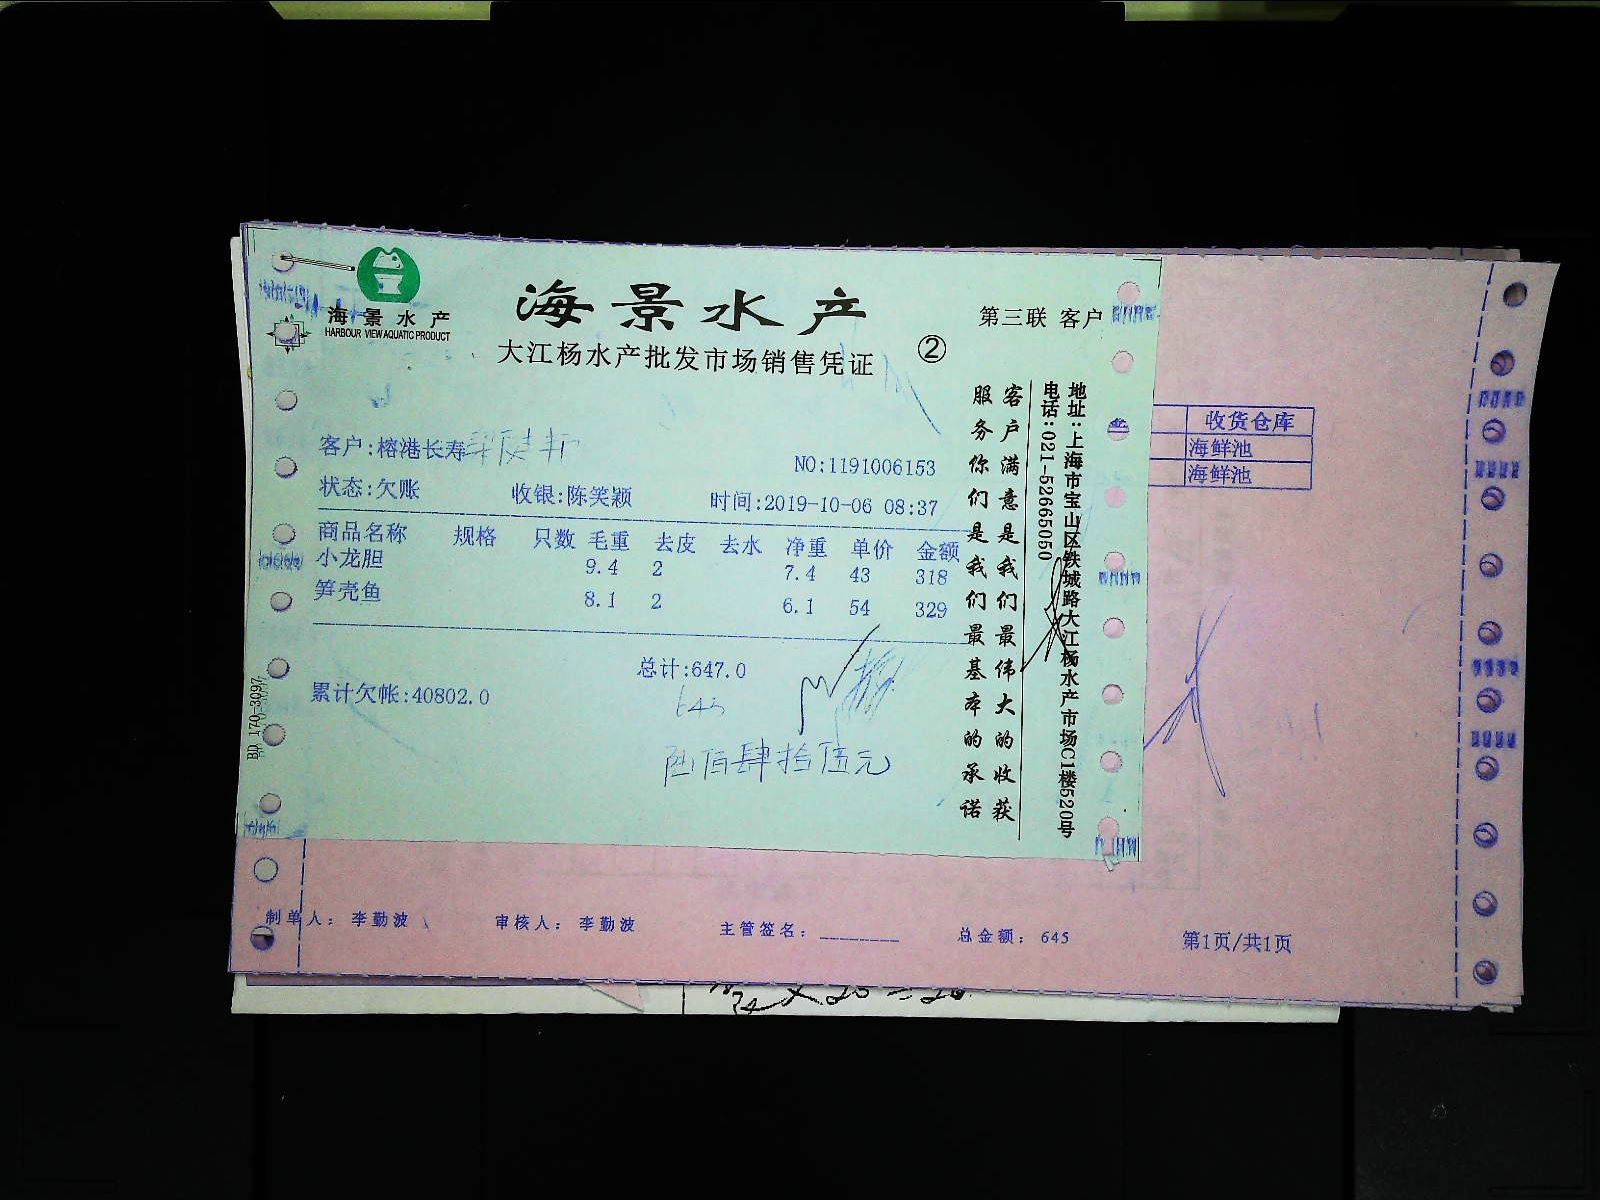 海景水产
HARBOUR VIEW AQUATIC PRODUCT
海景水产
大江杨水产批发市场销售凭证
②
第三联 客户
客户:榕港长寿
NO:1191006153
状态:欠账 收银:陈笑颖 时间:2019-10-06 08:37
商品名称 规格 只数 毛重 去皮 去水 净重 单价 金额
小龙胆 9.4 2 7.4 43 318
笋壳鱼 8.1 2 6.1 54 329
总计:647.0
累计欠帐:40802.0
645
陆佰肆拾伍元
BD 170-3097
地址:上海市宝山区铁城路大江杨水产市场C1楼520号
电话:021-52665050
客户满意是我们最伟大的收获
服务你们是我们最基本的承诺
收货仓库
海鲜池
海鲜池
制单人: 李勤波 审核人: 李勤波 主管签名: ________ 总金额: 645 第1页/共1页